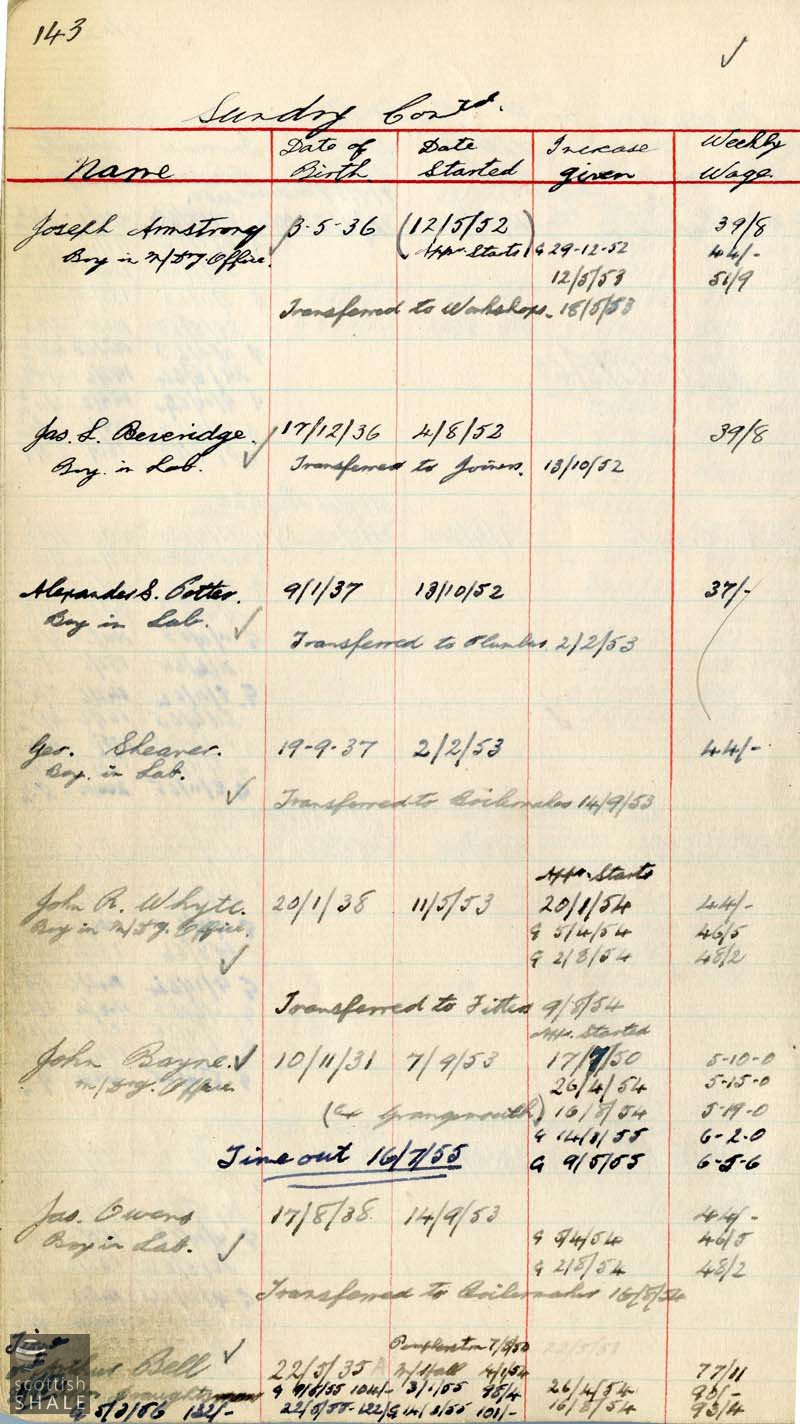 143
Sundry Contd.
Name Date of Birth Date Started Increase given Weekly Wage
Joseph Armstrong 3-5-36 (12/5/52) 39/8
Boy in M/Drg Office. Appr. Starts G 29-12-52 44/-
12/5/53 51/9
Transferred to Workshops. 18/5/53
Jas. L. Beveridge. 17/12/36 4/8/52 39/8
Boy in Lab. Transferred to Joiners. 13/10/52
Alexander S. Potter. 9/1/37 13/10/52 37/-
Boy in Lab.
Transferred to Plumber 2/2/53
Geo. Shearer. 19-9-37 2/2/53 44/-
Boy. in Lab.
Transferred to Boilermaker 14/9/53
Appr. Starts
John R. Whyte. 20/1/38 11/5/53 20/1/54 44/-
Boy in M/Drg. Office. G 5/4/54 46/5
G 2/8/54 48/2
Transferred to Fitters 9/8/54
App. Started
John Bayne. 10/11/31 7/9/53 17/7/50 5-10-0
M/Drg. Office. 26/4/54 5-15-0
(Ex Grangemouth) 16/8/54 5-19-0
G 14/3/55 6-2-0
Time out 16/7/55 G 9/5/55 6-5-6
Jas. Owens 17/8/38 14/9/53 44/-
Boy in Lab. G 5/4/54 46/5
G 2/8/54 48/2
Transferred to Boilermaker 16/8/54
Pumpherston 22/5/53
Bell 22/5/35 4/1/54 77/11
G 9/5/55 104/- 3/1/55 95/4 26/4/54
G 5/3/56 132/- 22/5/55 - 122/ G 14/3/55 101/- 16/8/54 93/4
scottish
SHALE